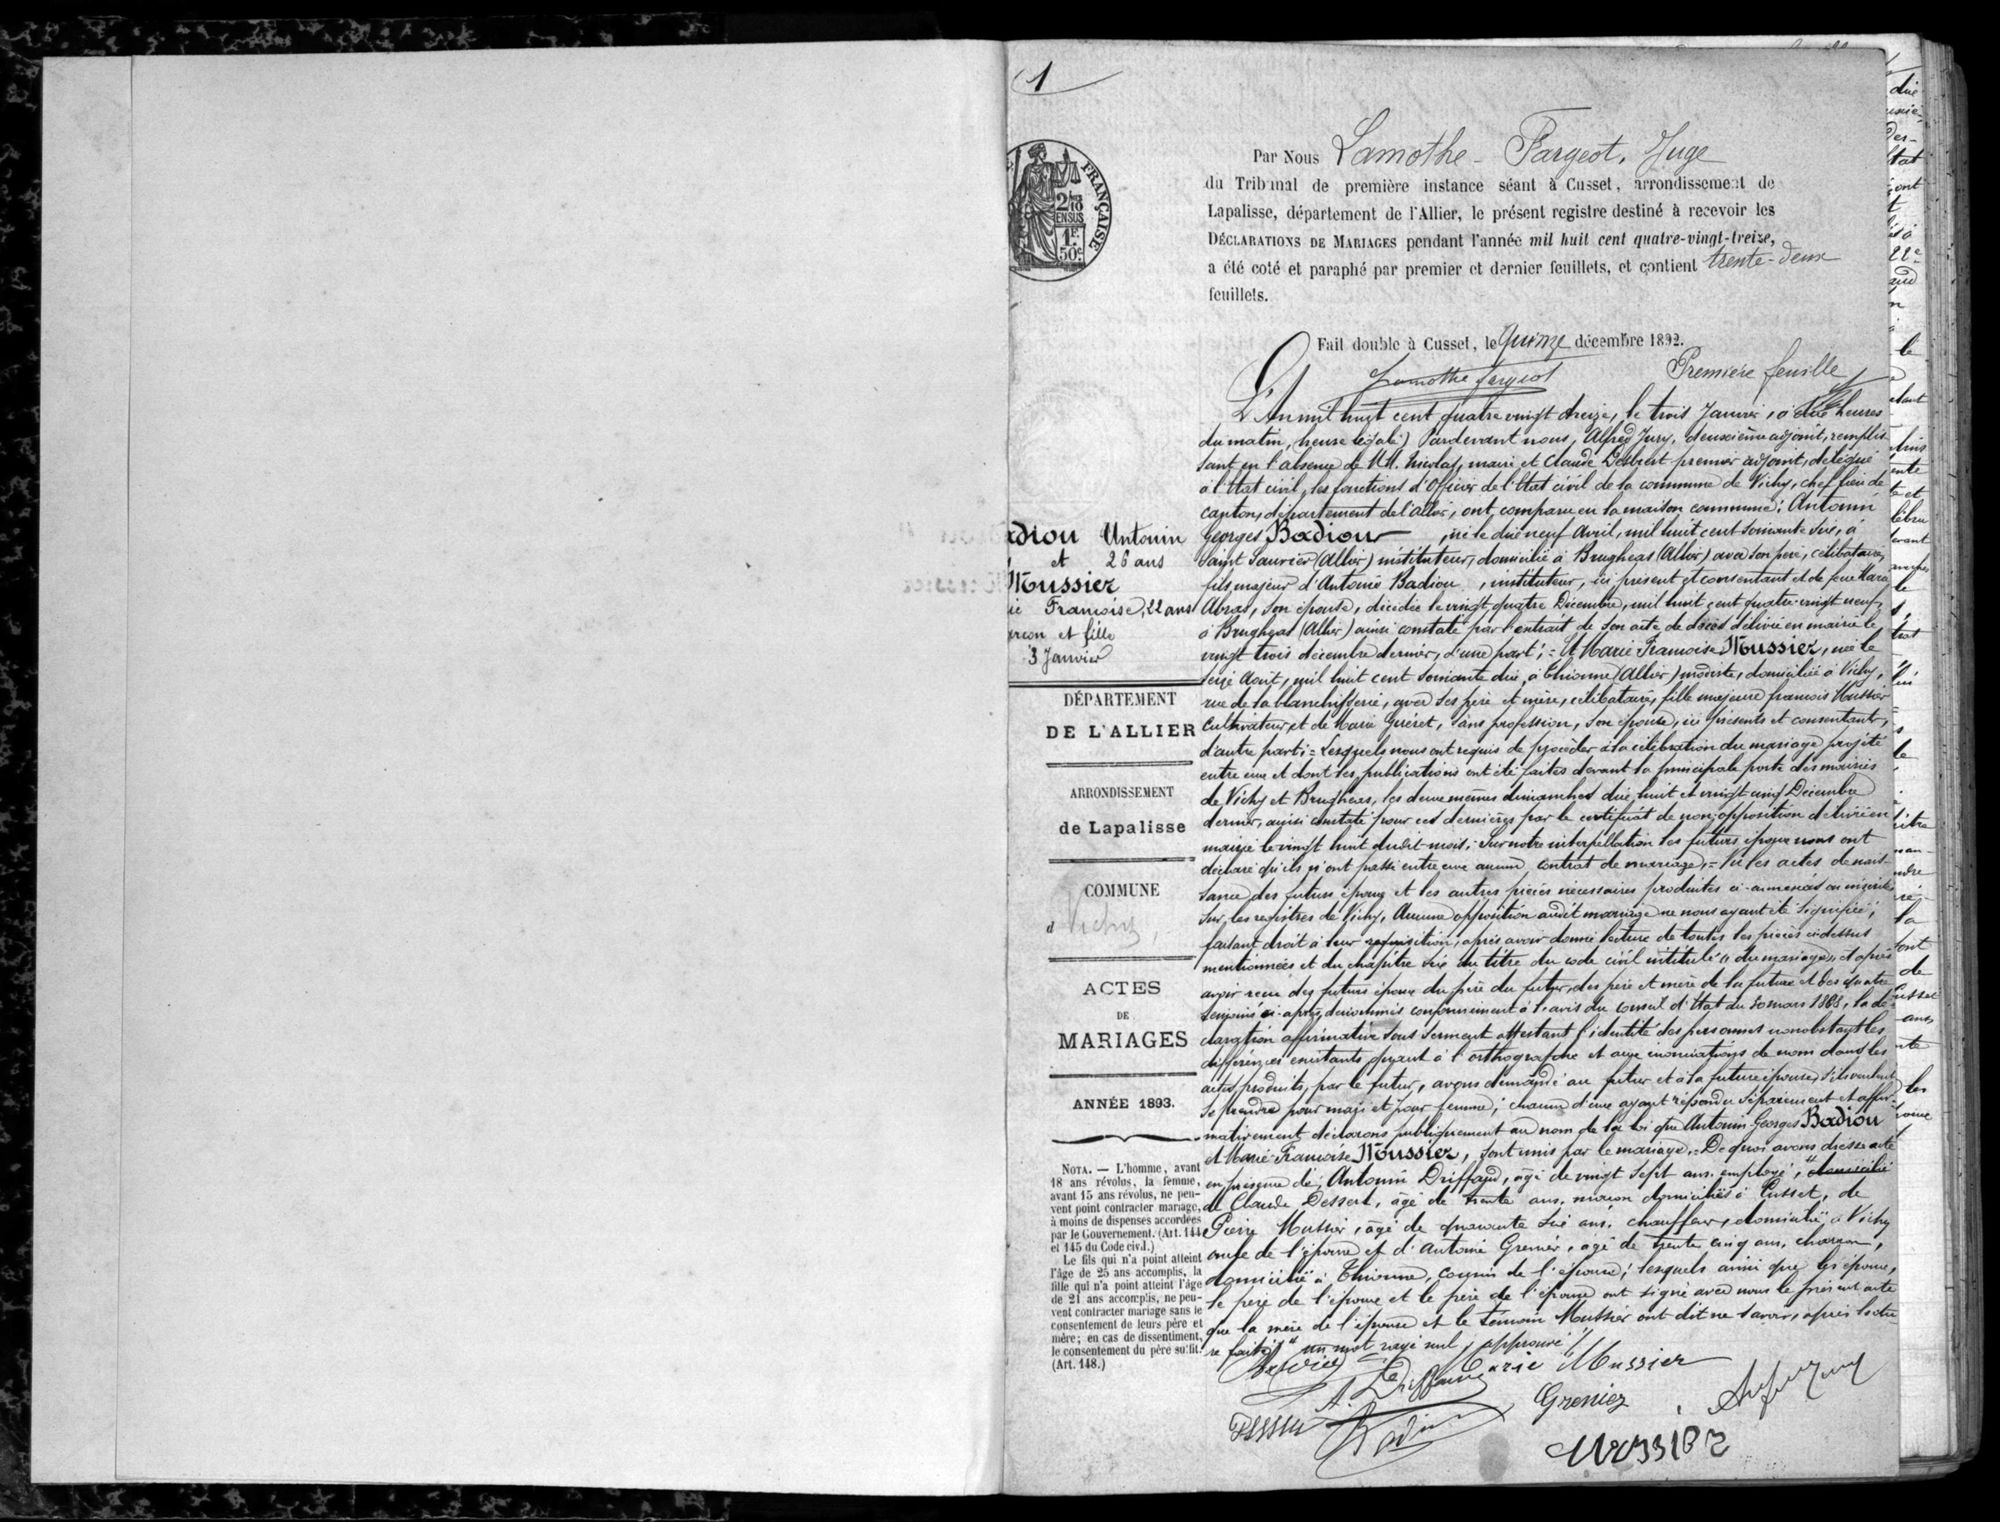 1
FRANÇAISE
2/10
EN SUS
1F
50c
Par Nous Lamothe-Fargeot, Juge
du Tribunal de première instance séant à Cusset, arrondissement de
Lapalisse, département de l'Allier, le présent registre destiné à recevoir les
DÉCLARATIONS DE MARIAGES pendant l'année mil huit cent quatre-vingt-treize,
a été coté et paraphé par premier et dernier feuillets, et contient trente-deux
feuillets.
Fait double à Cusset, le Quinze décembre 1892.
Lamothe Fargeot
Première feuille
adiou Antonin
et 26 ans
Mussier
ie Françoise, 22 ans
arçon et fille
3 Janvier
DÉPARTEMENT
DE L'ALLIER
ARRONDISSEMENT
de Lapalisse
COMMUNE
d Vichy
ACTES
DE
MARIAGES
ANNÉE 1893.
NOTA. — L'homme, avant
18 ans révolus, la femme,
avant 15 ans révolus, ne peu-
vent point contracter mariage,
à moins de dispenses accordées
par le Gouvernement. (Art. 144
et 145 du Code civil.)
Le fils qui n'a point atteint
l'âge de 25 ans accomplis, la
fille qui n'a point atteint l'âge
de 21 ans accomplis, ne peu-
vent contracter mariage sans le
consentement de leurs père et
mère; en cas de dissentiment,
le consentement du père suffit.
(Art. 148.)
L'An mil huit cent quatre vingt treize, le trois Janvier, à dix heures
du matin, (heure légale) Pardevant nous, Alfred Jury, deuxième adjoint, remplis-
sant en l'absence de MM. Nicolas, maire et Claude Desbrest premier adjoint, délégué
à l'État civil, les fonctions d'Officier de l'État civil de la commune de Vichy, chef lieu de
canton, département de l'allier, ont comparu en la maison commune: Antonin
Georges Badiou, né le dix neuf Avril, mil huit cent soixante six, à
Saint Sauvier (Allier) instituteur, domicilié à Brugheas (Allier) avec son père, célibataire,
fils majeur d'Antoine Badiou, instituteur, ici présent et consentant et de feue Marie
Abras, son épouse, décédée le vingt quatre Décembre, mil huit cent quatre vingt neuf,
à Brugheas (Allier) ainsi constaté par l'extrait de son acte de décès délivré en mairie le
vingt trois décembre dernier, d'une part; = Et Marie Françoise Mussier, née le
seize Août, mil huit cent soixante dix, à Thionne (Allier) modiste, domiciliée à Vichy,
rue de la blanchisserie, avec ses père et mère, célibataire, fille majeure françois Mussier
Cultivateur, et de Marie Guéret, sans profession, son épouse, ici présents et consentants,
d'autre part; = Lesquels nous ont requis de procéder à la célébration du mariage projeté
entre eux et dont les publications ont été faites devant la principale porte des mairies
de Vichy et Brugheas, les deux mêmes dimanches dix huit et vingt cinq Décembre
dernier, ainsi constaté pour ces dernières par le certificat de non opposition délivré en
mairie le vingt huit dudit mois; Sur notre interpellation les futurs époux nous ont
déclaré qu'ils n'ont passé entre eux aucun contrat de mariage; = Vu les actes de nais-
sance des futurs époux et les autres pièces nécessaires produites ci-annexées ou inscrites
sur les registres de Vichy, Aucune opposition audit mariage ne nous ayant été signifiée,
faisant droit à leur réquisition, après avoir donné lecture de toutes les pièces ci-dessus
mentionnées et du chapitre six du titre du code civil intitulé "du mariage" et après
avoir reçu des futurs époux du père du futur, des père et mère de la future et des quatre
témoins ci-après dénommés conformément à l'avis du Conseil d'État du 30 mars 1808, la dé-
claration affirmative sous serment attestant l'identité des personnes nonobstant les
différences existants quant à l'orthographe et aux énonciations de nom dans les
actes produits, par le futur, avons demandé au futur et à la future épouse, s'ils veulent
se prendre pour mari et pour femme; chacun d'eux ayant répondu séparément et affir-
mativement, déclarons publiquement au nom de la loi que Antonin Georges Badiou
et Marie Françoise Mussier, sont unis par le mariage. De quoi avons dressé acte
en présence de; Antonin Driffaud, âgé de vingt sept ans, employé, domicilié
de Claude Dessert, âgé de trente ans, maçon domiciliés à Cusset, de
Pierre Mussier, âgé de quarante six ans, chauffeur, domicilié à Vichy
oncle de l'épouse et d'Antoine Grenier, âgé de trente cinq ans, charron,
domicilié à Thionne, cousin de l'épouse; lesquels ainsi que les époux,
le père de l'époux et le père de l'épouse ont signé avec nous le présent acte
que la mère de l'épouse et le témoin Mussier ont dit ne savoir, après lectu-
re faite; "un mot rayé nul, approuvé"
Marie Mussier
A. Driffaud
Grenier
Badiou
Mussier